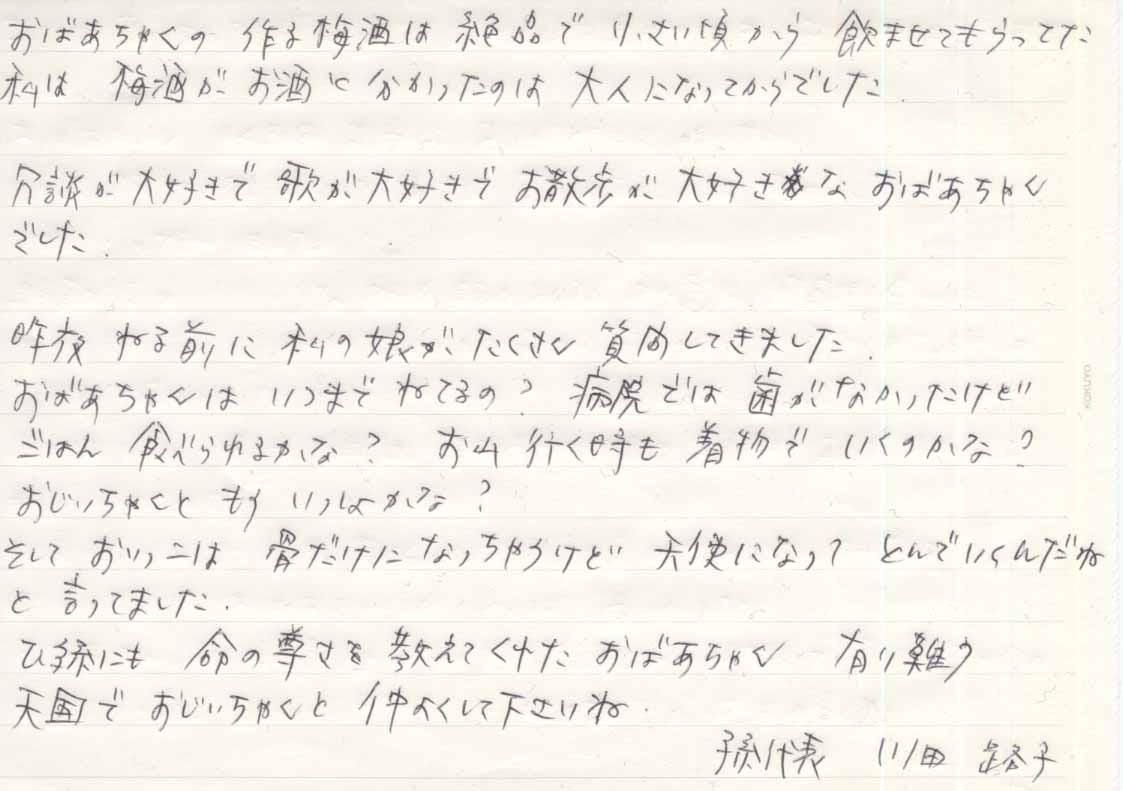 おばあちゃんの 作る梅酒は 絶品で 小さい頃から 飲ませてもらってた
私は 梅酒が お酒と分かったのは 大人になってからでした
冗談が大好きで 歌が大好きで お散歩が 大好きな おばあちゃん
でした.
昨夜 ねる前に 私の娘が、たくさん 質問してきました.
おばあちゃんは いつまで ねてるの? 病院では 歯がなかったけど
ごはん 食べられるかな? お山 行く時も 着物で いくのかな?
おじいちゃんと もう いっしょかな?
そして は 骨だけに なっちゃうけど 天使になって とんでいくんだね
と 言ってました.
ひ孫にも 命の尊さを 教えてくれた おばあちゃん 有り難う
天国で おじいちゃんと 仲よくして下さいね.
孫代表 川田 路子
KOKUYO